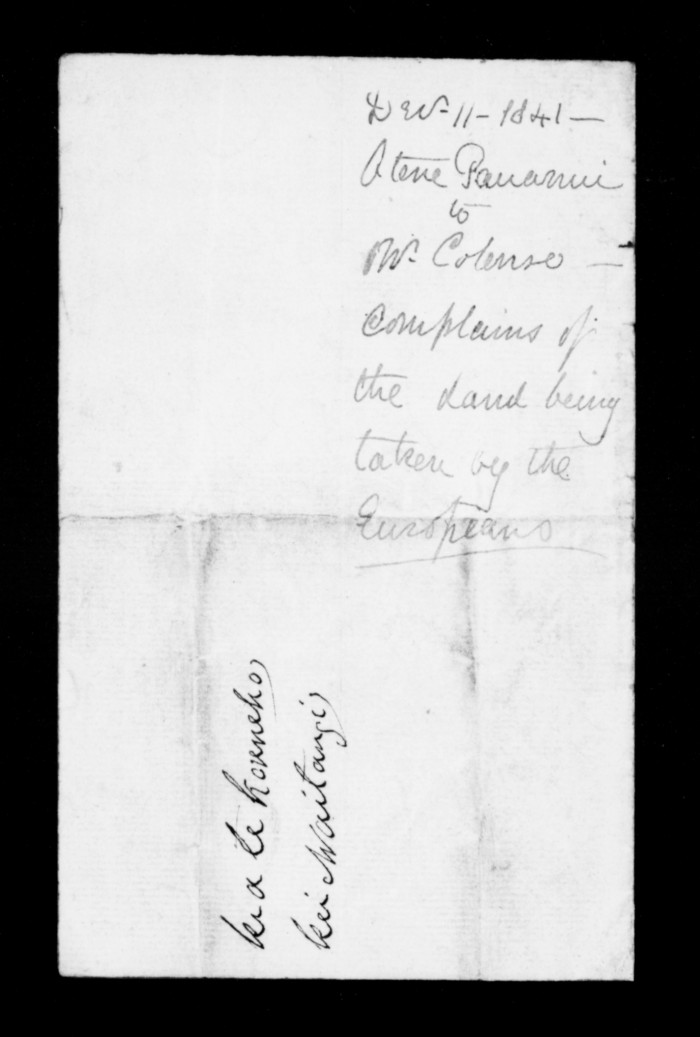 Dec. 11 - 1841 -
Atene Pauamui
to
Mr. Colenso -
complains of
the land being
taken by the
Europeans
kia te Koreneho,
kei Waitangi,